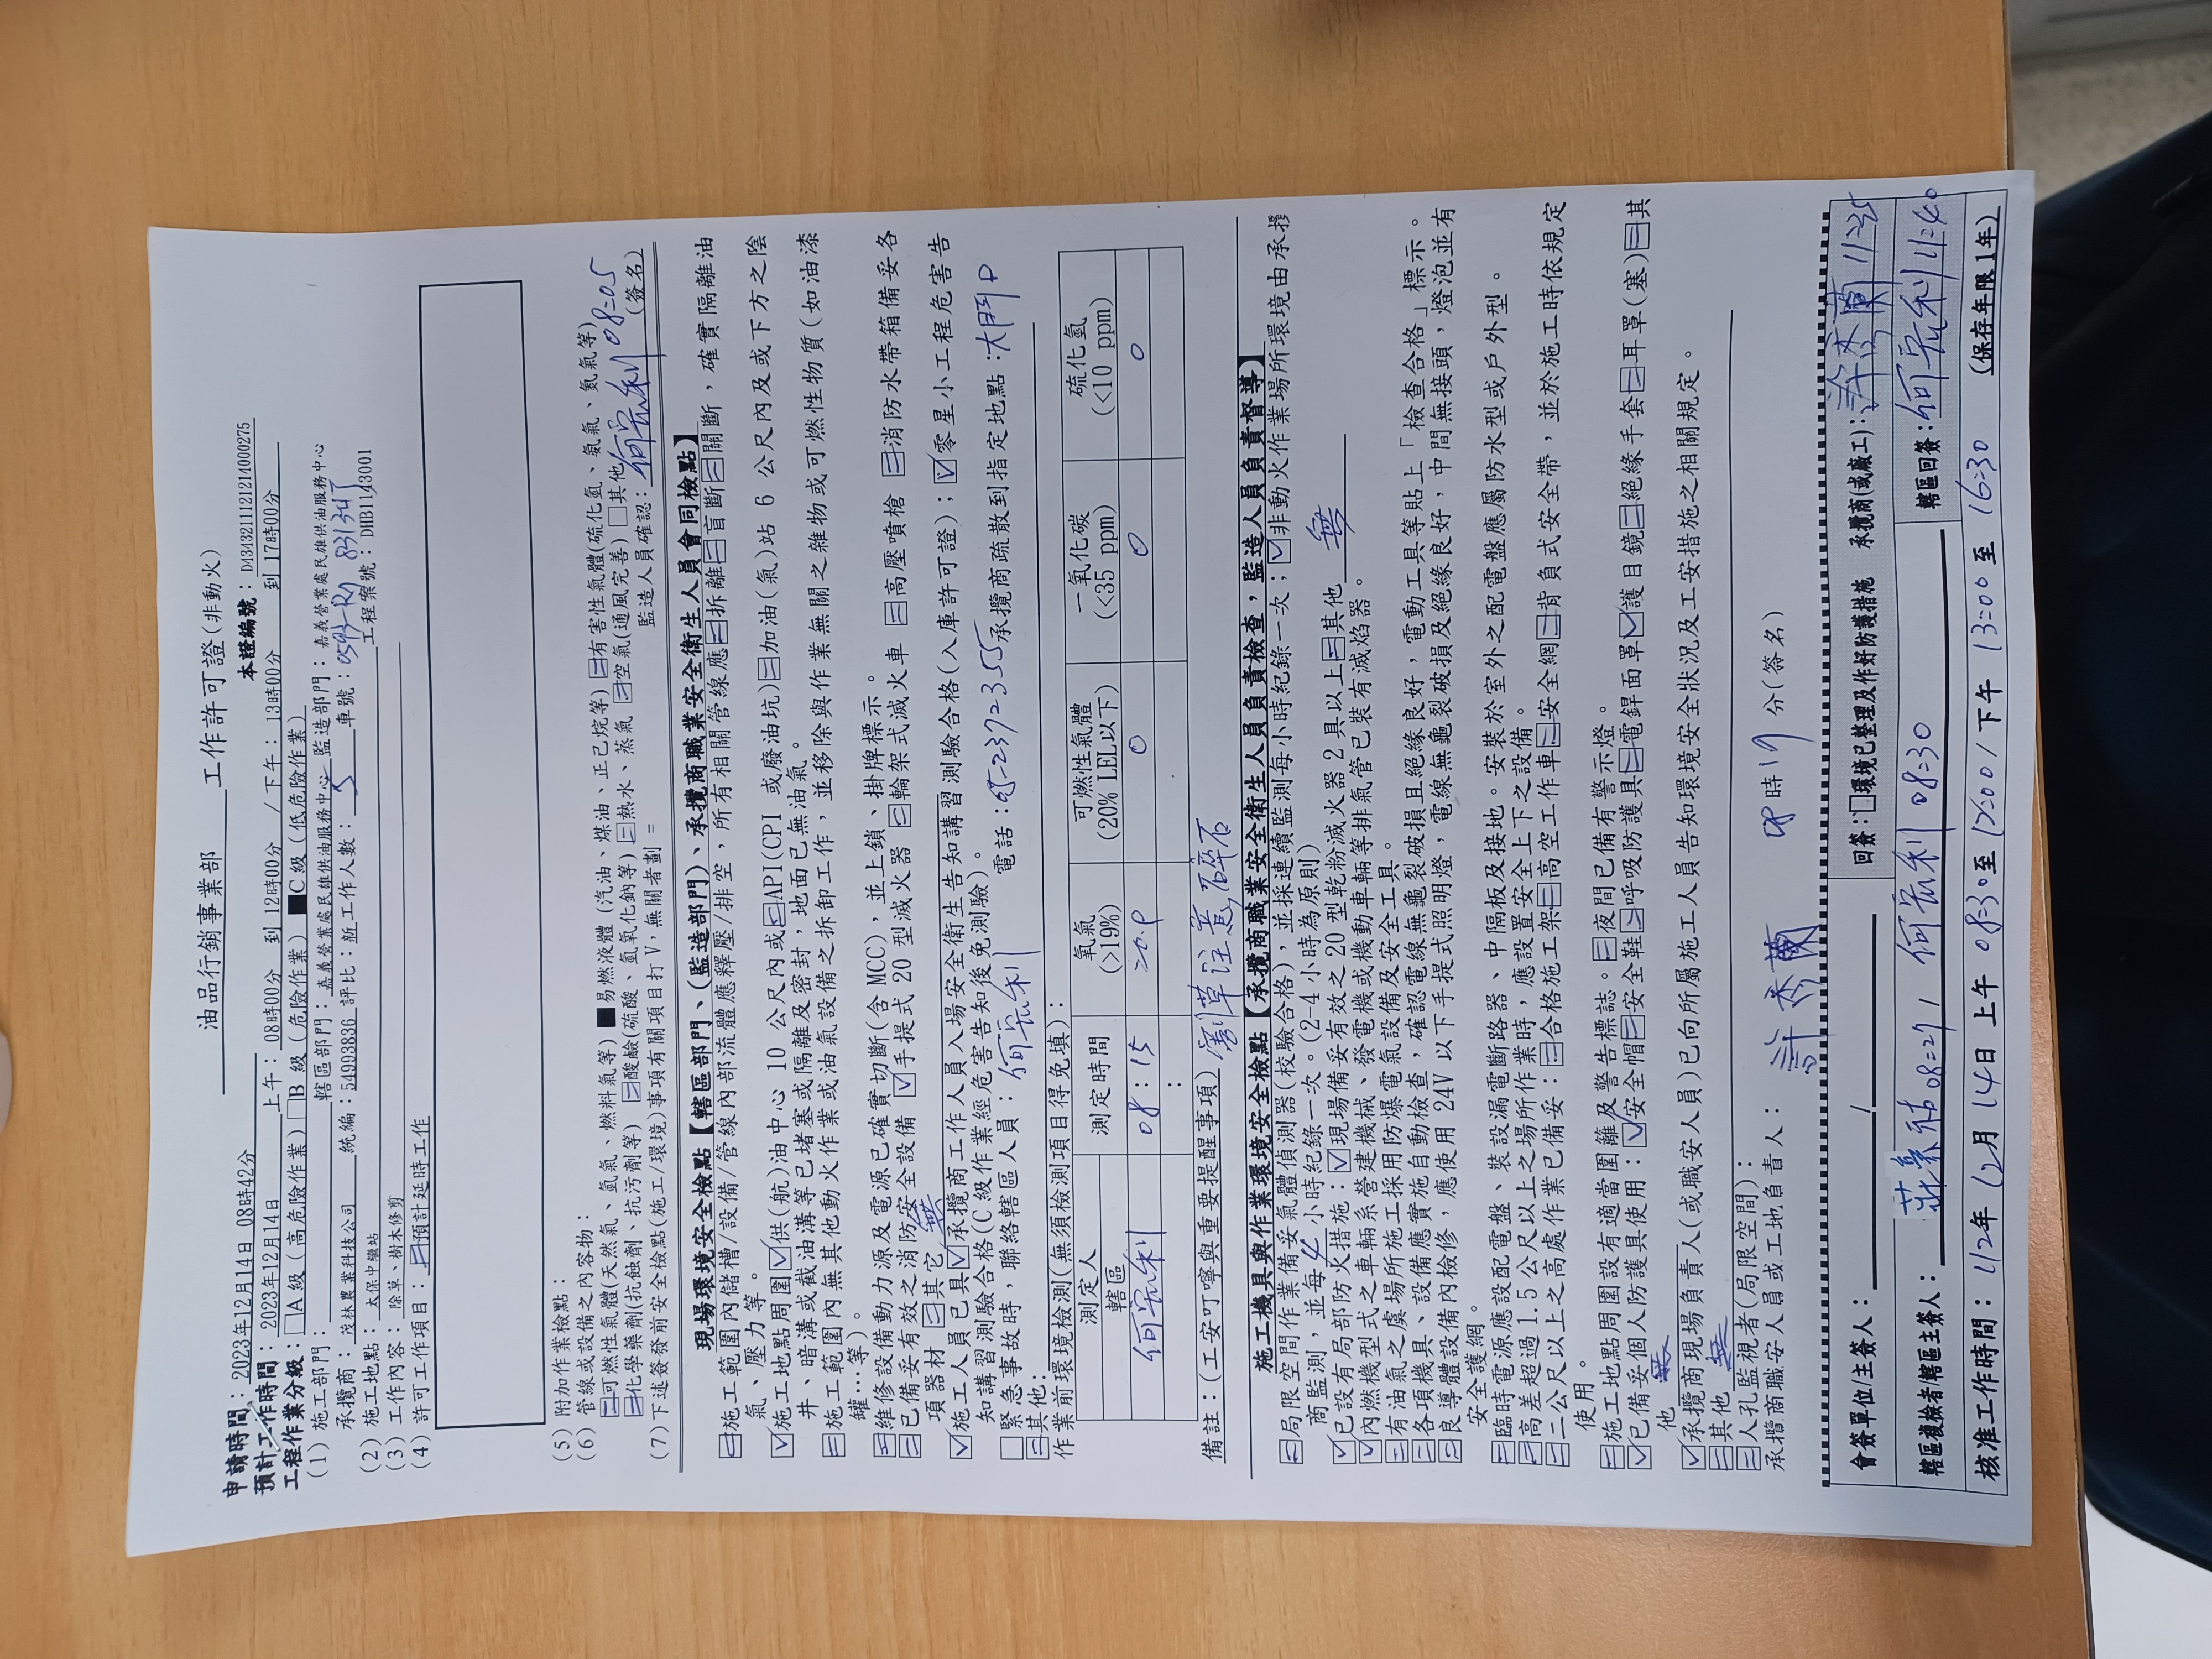 油品行銷事業部 工作許可證(非動火)
申請時間：2023年12月14日 08時42分 本證編號：D4343211121214000275
預計工作時間：2023年12月14日 上午：08時00分 到 12時00分 /下午：13時00分 到 17時00分
工程作業分級：□A級（高危險作業）□B 級（危險作業）■C級（低危險作業）
(1)施工部門： 轄區部門：嘉義營業處民雄供油服務中心 監造部門：嘉義營業處民雄供油服務中心
承攬商：茂林農業科技公司 統編：54993836 評比：新 工作人數：5 車號：
(2)施工地點：太保中繼站 工程案號：DHB1143001
(3)工作內容：除草、樹木修剪
(4)許可工作項目：預計延時工作
(5)附加作業檢點：
(6)管線或設備之內容物：
可燃性氣體(天然氣、氫氣、燃料氣等) ■易燃液體 (汽油、煤油、正己烷等) 有害性氣體(硫化氫、氨氣、氮氣等)
化學藥劑(抗蝕劑、抗污劑等) 酸鹼(硫酸、氫氧化鈉等) 熱水、蒸氣 空氣(通風完善) □其他
監造人員確認：何宏利 08:05 (簽名)
(7)下述簽發前安全檢點(施工/環境)事項有關項目打 V，無關者劃 =
現場環境安全檢點【轄區部門、(監造部門)、承攬商職業安全衛生人員會同檢點】
施工範圍內儲槽/設備/管線內部流體應釋壓/排空，所有相關管線應拆離盲斷關斷，確實隔離油
氣、壓力等。
☑施工地點周圍☑供(航)油中心 10 公尺內或API(CPI 或廢油坑)加油(氣)站 6 公尺內及或下方之陰
井、暗溝或截油溝等已堵塞或隔離及密封，地面已無油氣。
施工範圍內無其他動火作業或油氣設備之拆卸工作，並移除與作業無關之雜物或可燃性物質(如油漆
罐…等)。
維修設備動力源及電源已確實切斷(含 MCC)，並上鎖、掛牌標示。
已備妥有效之消防安全設備 ☑手提式 20 型滅火器 輪架式滅火車 高壓噴槍 消防水帶箱備妥各
項器材 其它 無
☑施工人員已具☑承攬商工作人員入場安全衛生告知講習測驗合格(入庫許可證)；☑零星小工程危害告
知講習測驗合格(C 級作業經危害告知後免測驗)。
□緊急事故時，聯絡轄區人員：何宏利 電話：05-2372355 承攬商疏散到指定地點：大門口
其他:
作業前環境檢測(無須檢測項目得免填)：
測定人 測定時間 氧氣 可燃性氣體 一氧化碳 硫化氫
轄區 (>19%) (20% LEL以下) (<35 ppm) (<10 ppm)
何宏利 08：15 20.9 0 0 0
：
備註：(工安叮嚀與重要提醒事項) 割草注意碎石
施工機具與作業環境安全檢點【承攬商職業安全衛生人員負責檢查，監造人員負責督導】
局限空間作業備妥氣體偵測器(校驗合格)，並採連續監測每小時紀錄一次；☑非動火作業場所環境由承攬
商監測，並每 4 小時紀錄一次。(2-4 小時為原則)
☑已設有局部防火措施：☑現場備妥有效之 20 型乾粉滅火器 2 具以上其他 無
☑內燃機型式之車輛系營建機械、發電機或機動車輛等排氣管已裝有滅焰器。
有油氣之虞場所施工採用防爆電氣設備及安全工具。
各項機具、設備應實施自動檢查，確認電線無龜裂破損且絕緣良好，電動工具等貼上「檢查合格」標示。
良導體設備內檢修，應使用 24V 以下手提式照明燈，電線無龜裂破損及絕緣良好，中間無接頭，燈泡並有
安全護網。
臨時電源應設配電盤、裝設漏電斷路器、中隔板及接地。安裝於室外之配電盤應屬防水型或戶外型。
高差超過 1.5 公尺以上之場所作業時，應設置安全上下之設備。
二公尺以上之高處作業已備妥：合格施工架高空工作車安全網背負式安全帶，並於施工時依規定
使用。
施工地點周圍設有適當圍籬及警告標誌。夜間已備有警示燈。
☑已備妥個人防護具使用：☑安全帽安全鞋呼吸防護具電銲面罩☑護目鏡絕緣手套耳罩(塞)其
他 無
☑承攬商現場負責人(或職安人員)已向所屬施工人員告知環境安全狀況及工安措施之相關規定。
其他 無
人孔監視者(局限空間)：
承攬商職安人員或工地負責人：許秀蘭 08 時 19 分(簽名)
會簽單位/主簽人： / 回簽：□環境已整理及作好防護措施 承攬商(或廠工)：許秀蘭 11:35
轄區複檢者/轄區主簽人：莊豪祐 08:27 / 何宏利 08:30 轄區回簽：何宏利 11:40
核准工作時間： 112年 12月 14日 上午 08:30至 12:00 / 下午 13:00 至 16:30 (保存年限1年)